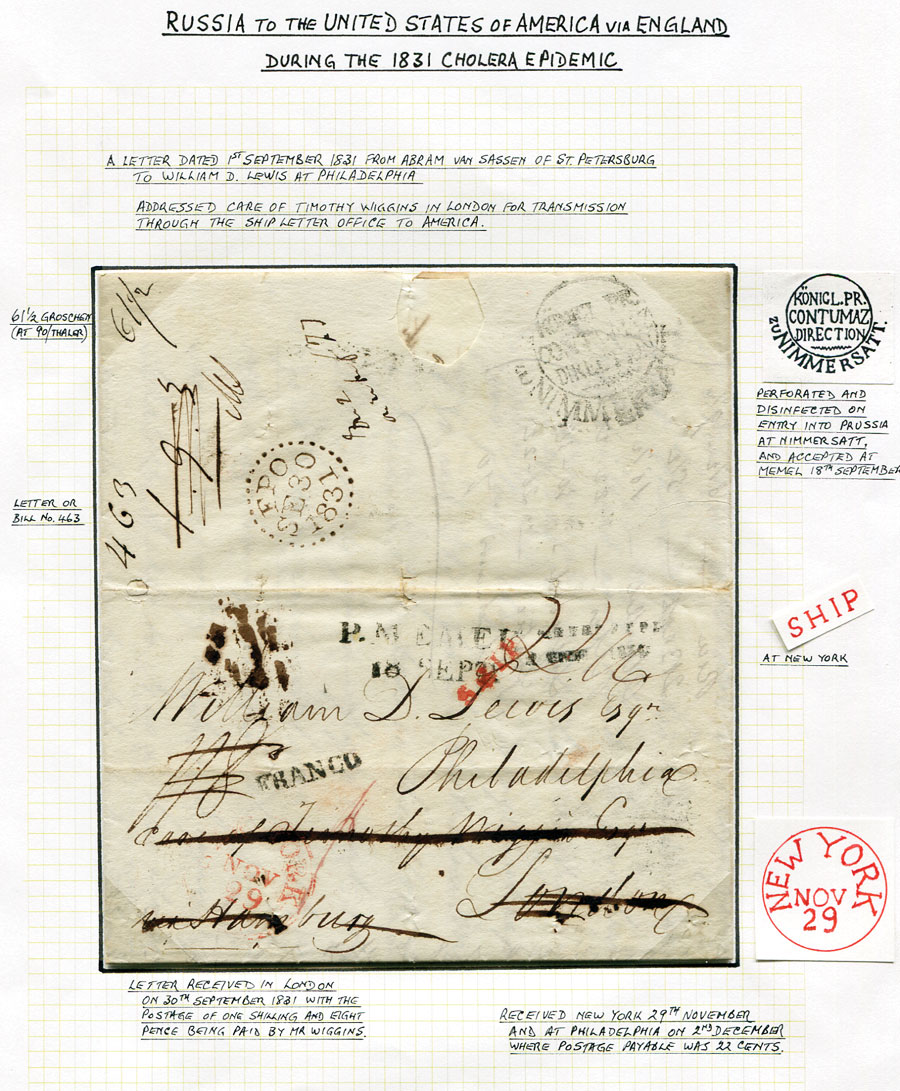 RUSSIA TO THE UNITED STATES OF AMERICA VIA ENGLAND
DURING THE 1831 CHOLERA EPIDEMIC
A LETTER DATED 1ST SEPTEMBER 1831 FROM ABRAM VAN SASSEN OF ST. PETERSBURG
TO WILLIAM D. LEWIS AT PHILADELPHIA
ADDRESSED CARE OF TIMOTHY WIGGINS IN LONDON FOR TRANSMISSION
THROUGH THE SHIP LETTER OFFICE TO AMERICA.
61 1/2 GROSCHEN
(AT 90/THALER)
61 1/2
KÖNIGL. PR.
CONTUMAZ
DIRECTION
ZU NIMMERSATT.
KÖNIGL. PR.
CONTUMAZ
DIRECTION
ZU NIMMERSATT.
PERFORATED AND
DISINFECTED ON
ENTRY INTO PRUSSIA
AT NIMMERSATT,
AND ACCEPTED AT
MEMEL 18TH SEPTEMBER
LETTER OR
BILL NO. 463
463
FPO
SE 30
1831
SHIP
AT NEW YORK
P. MEMEL
18 SEPT
SHIP
William D. Lewis Esqr
FRANCO
Philadelphia.
care of Timothy Wiggin Esqr
London
via Hamburg
YORK
NOV
29
NEW YORK
NOV
29
LETTER RECEIVED IN LONDON
ON 30TH SEPTEMBER 1831 WITH THE
POSTAGE OF ONE SHILLING AND EIGHT
PENCE BEING PAID BY MR WIGGINS.
RECEIVED NEW YORK 29TH NOVEMBER
AND AT PHILADELPHIA ON 2ND DECEMBER
WHERE POSTAGE PAYABLE WAS 22 CENTS.